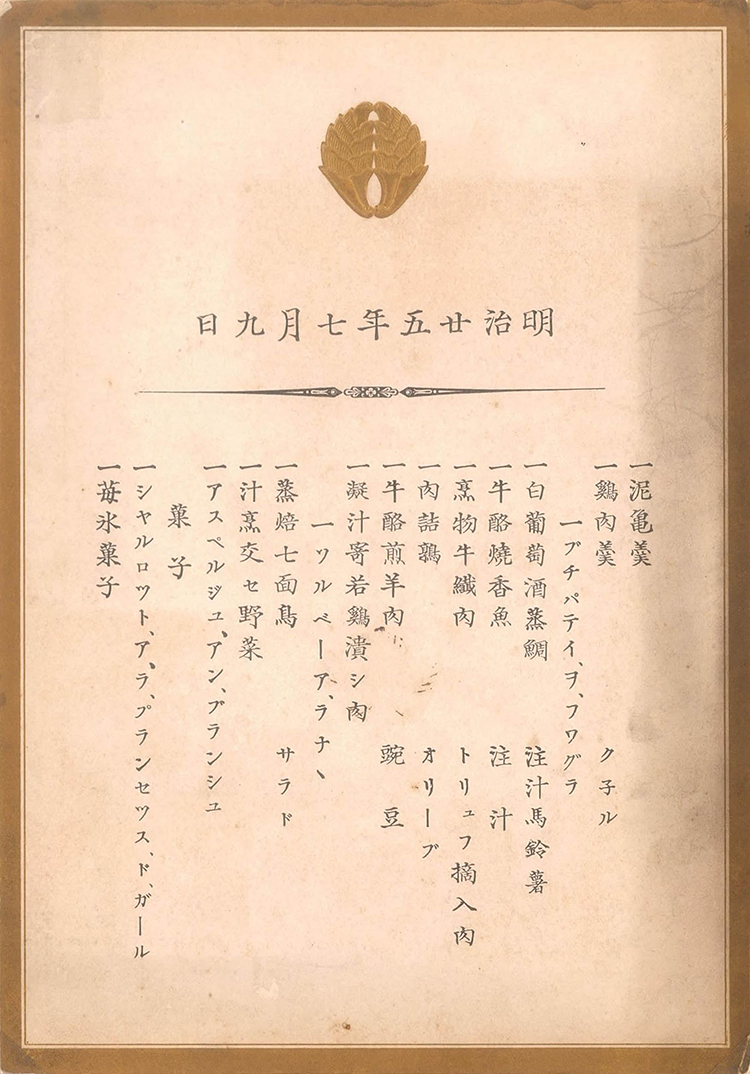 明治廿五年七月九日
一泥亀羹
一鷄肉羹 ク子ル
一プチパテイ、ヲ、フワグラ
一白葡萄酒蒸鯛 注汁馬鈴薯
一牛酪燒香魚 注汁
一烹物牛纎肉 トリュフ摘入肉
一肉詰鶉 オリーブ
一牛酪煎羊肉 豌豆
一凝汁寄若鷄潰シ肉
一ソルベーア、ラナヽ
一蒸焙七面鳥 サラド
一汁烹交セ野菜
一アスペルジュ、アン、ブランシュ
菓子
一シャルロツト、ア、ラ、プランセツス、ド、ガール
一苺氷菓子